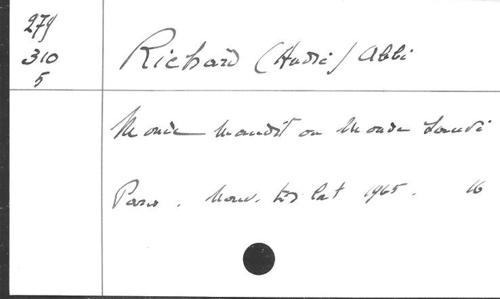 279
310
5
Richard (André) Abbé
Monde Maudit ou Monde Sauvé
Paris. Nouv. éd. lat 1965. 16